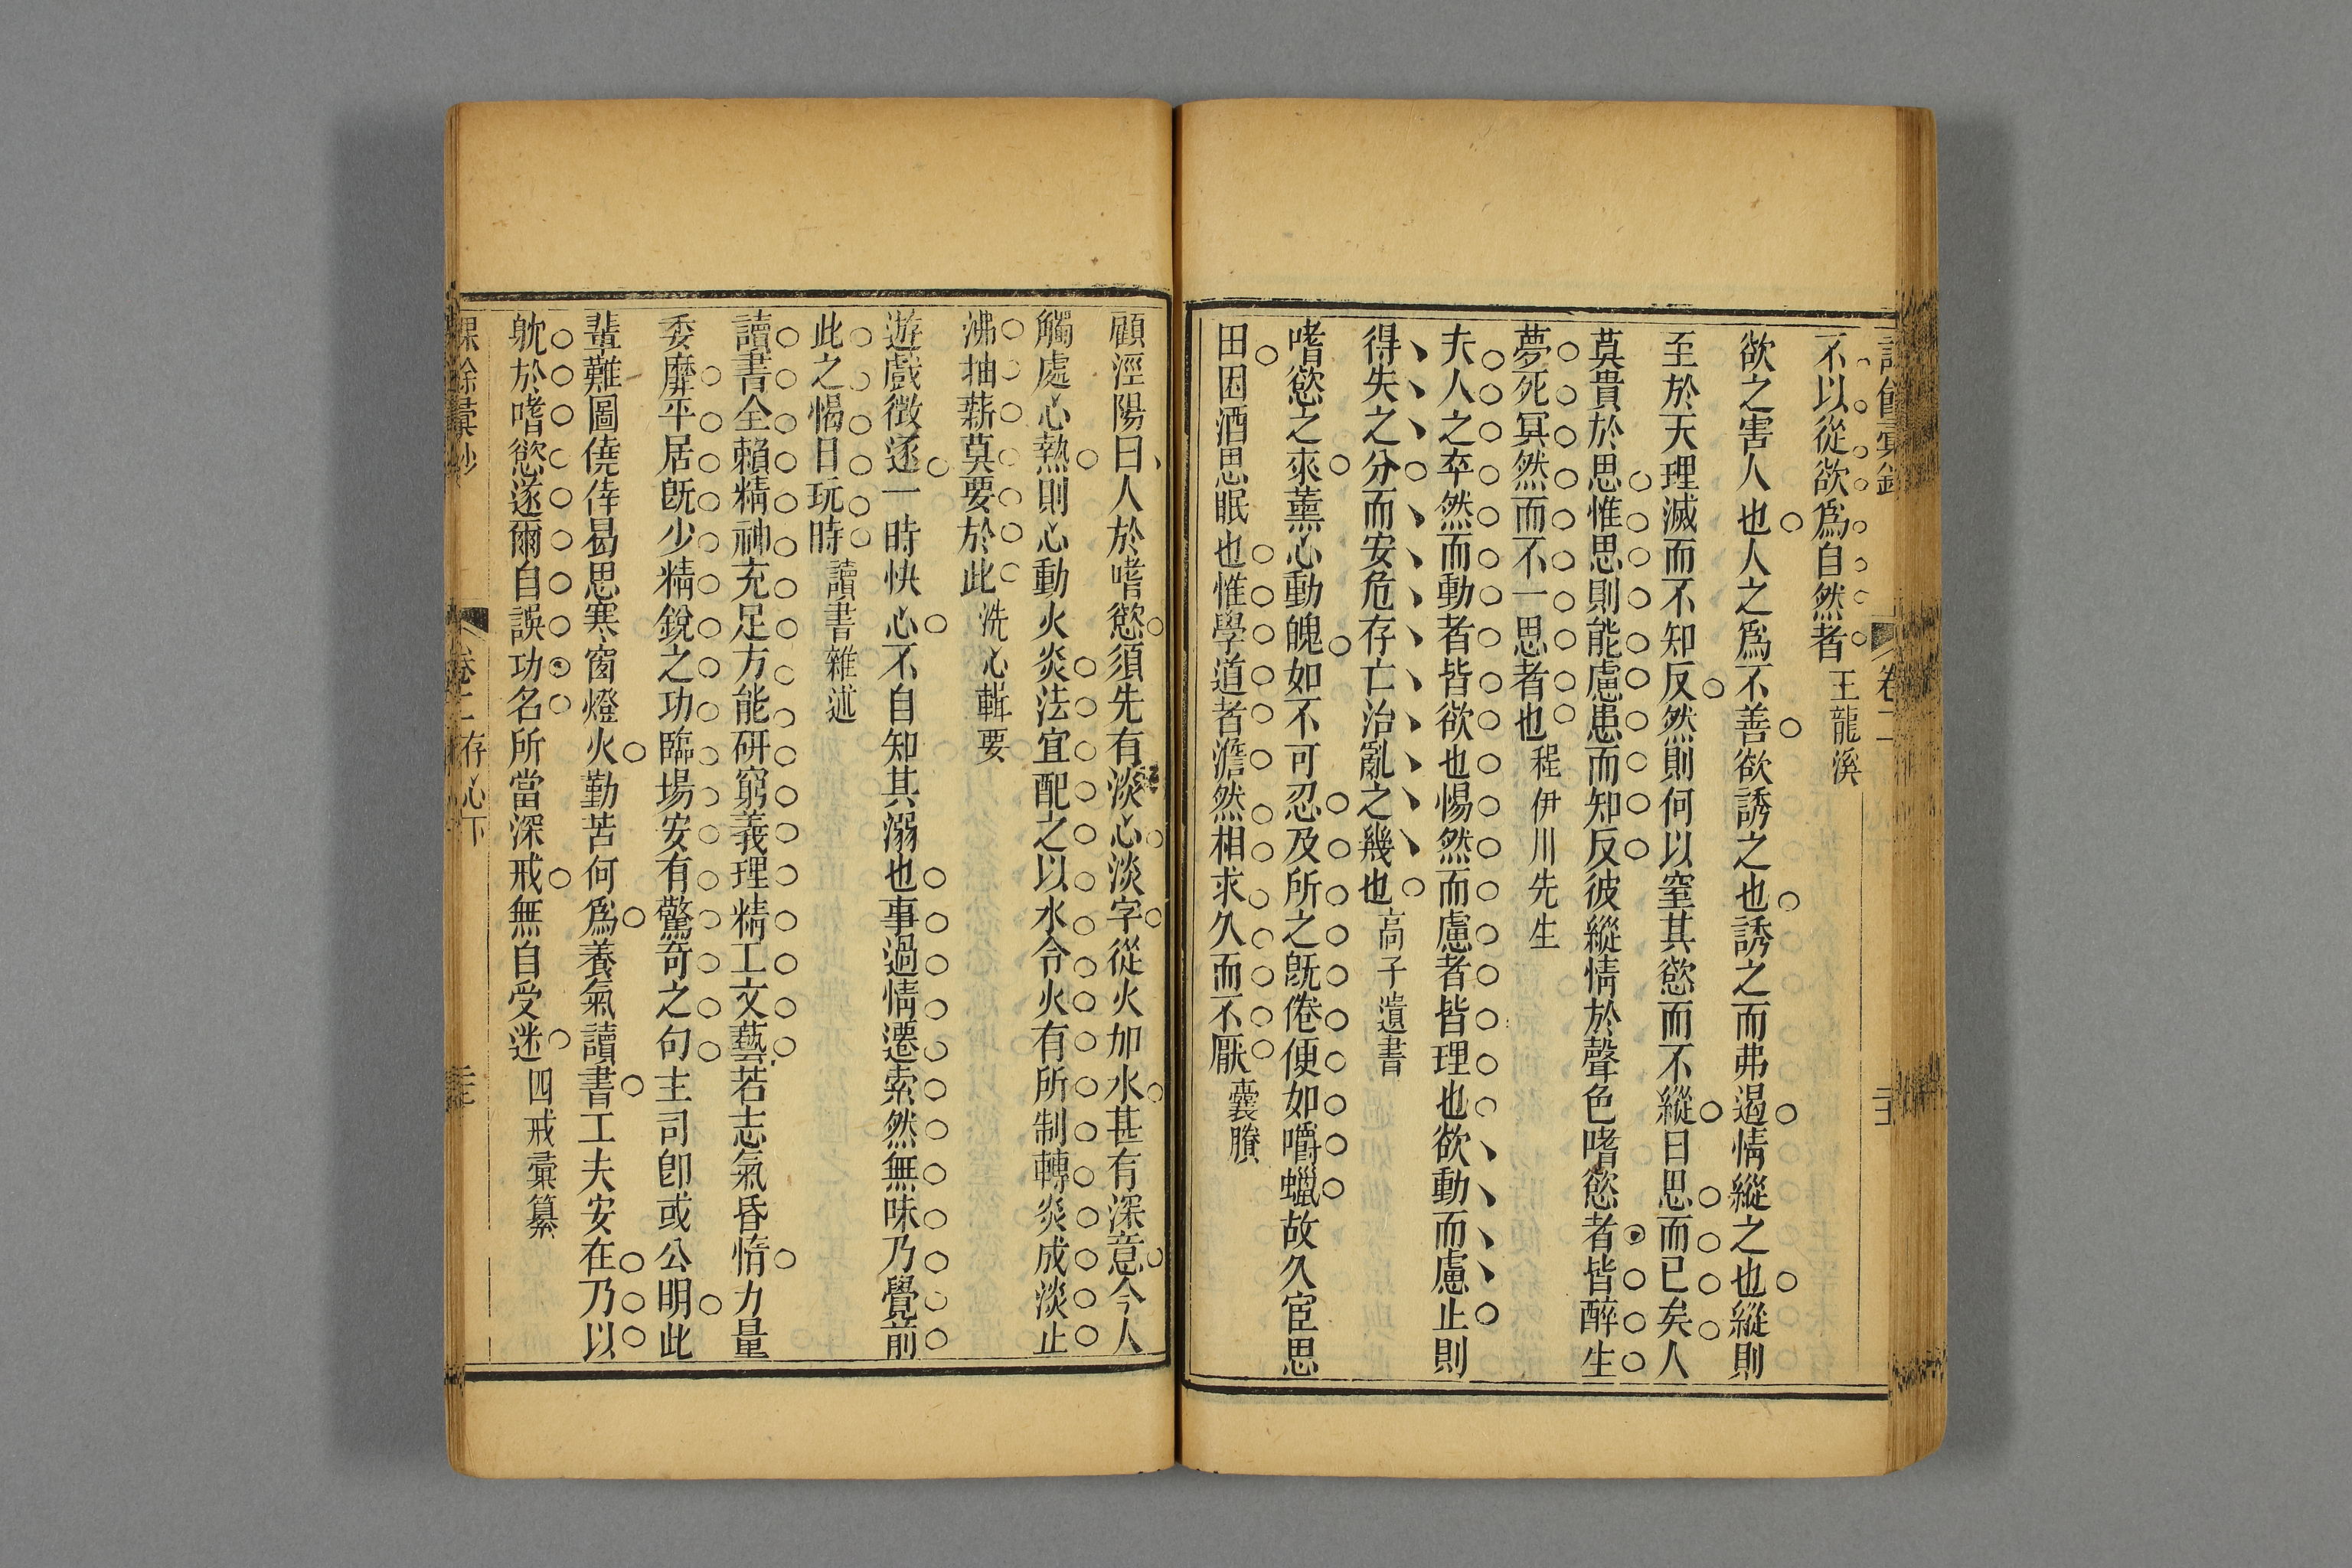 不以從欲爲自然者 王龍溪
欲之害人也人之爲不善欲誘之也誘之而弗遏情縱之也縱則
至於天理滅而不知反然則何以窒其慾而不縱曰思而已矣人
莫貴於思惟思則能慮患而知反彼縱情於聲色嗜慾者皆醉生
夢死冥然而不一思者也 程伊川先生
夫人之卒然而動者皆欲也惕然而慮者皆理也欲動而慮止則
得失之分而安危存亡治亂之幾也 高子遺書
嗜慾之來薰心動魄如不可忍及所之旣倦便如嚼蠟故久宦思
田困酒思眠也惟學道者澹然相求久而不厭 囊賸
顧涇陽曰人於嗜慾須先有淡心淡字從火加水甚有深意今人
觸處心熱則心動火炎法宜配之以水令火有所制轉炎成淡止
沸抽薪莫要於此 洗心輯要
遊戲徵逐一時快心不自知其溺也事過情遷索然無味乃覺前
此之愒日玩時 讀書雜述
讀書全賴精神充足方能研窮義理精工文藝若志氣昏惰力量
委靡平居旣少精銳之功臨場安有驚奇之句主司卽或公明此
輩難圖僥倖曷思寒窗燈火勤苦何爲養氣讀書工夫安在乃以
躭於嗜慾遂爾自誤功名所當深戒無自受迷 四戒彙纂
卷二 存心下